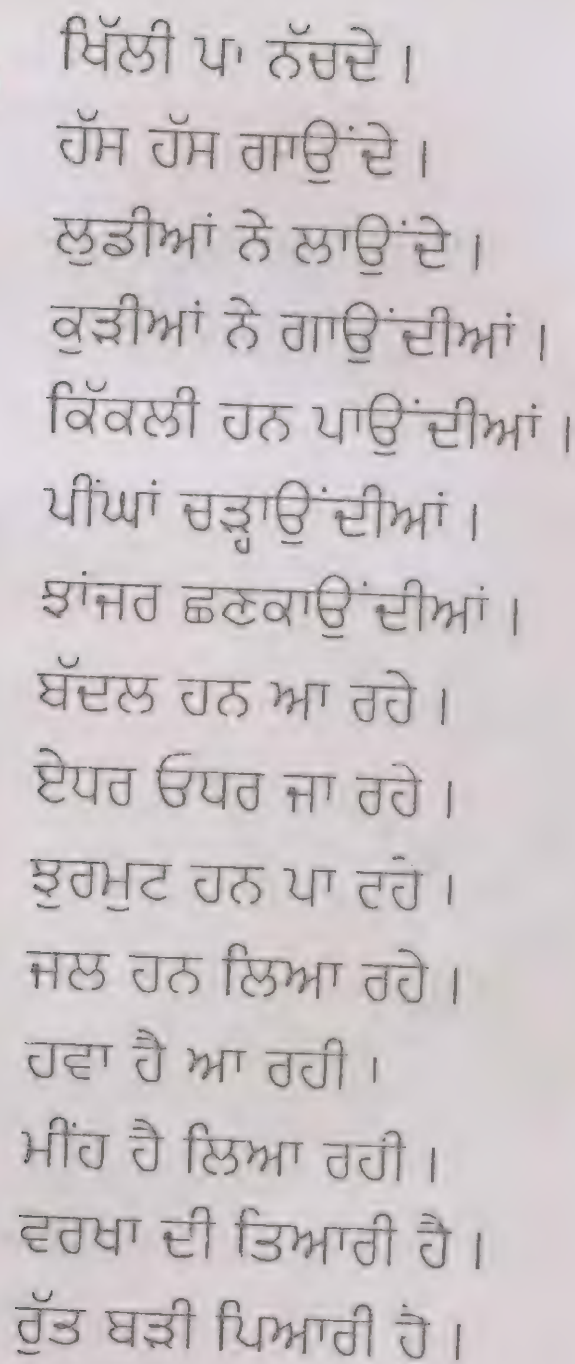 ਖਿੱਲੀ ਪਾ ਨੱਚਦੇ ।
ਹੱਸ ਹੱਸ ਗਾਉਂਦੇ ।
ਲੁਡੀਆਂ ਨੇ ਲਾਉਂਦੇ ।
ਕੁੜੀਆਂ ਨੇ ਗਾਉਂਦੀਆਂ ।
ਕਿੱਕਲੀ ਹਨ ਪਾਉਂਦੀਆਂ ।
ਪੀਂਘਾਂ ਚੜ੍ਹਾਉਂਦੀਆਂ ।
ਝਾਂਜਰ ਛਣਕਾਉਂਦੀਆਂ ।
ਬੱਦਲ ਹਨ ਆ ਰਹੇ ।
ਏਧਰ ਓਧਰ ਜਾ ਰਹੇ ।
ਝੁਰਮੁਟ ਹਨ ਪਾ ਰਹੇ ।
ਜਲ ਹਨ ਲਿਆ ਰਹੇ ।
ਹਵਾ ਹੈ ਆ ਰਹੀ ।
ਮੀਂਹ ਹੈ ਲਿਆ ਰਹੀ ।
ਵਰਖਾ ਦੀ ਤਿਆਰੀ ਹੈ ।
ਰੁੱਤ ਬੜੀ ਪਿਆਰੀ ਹੈ ।